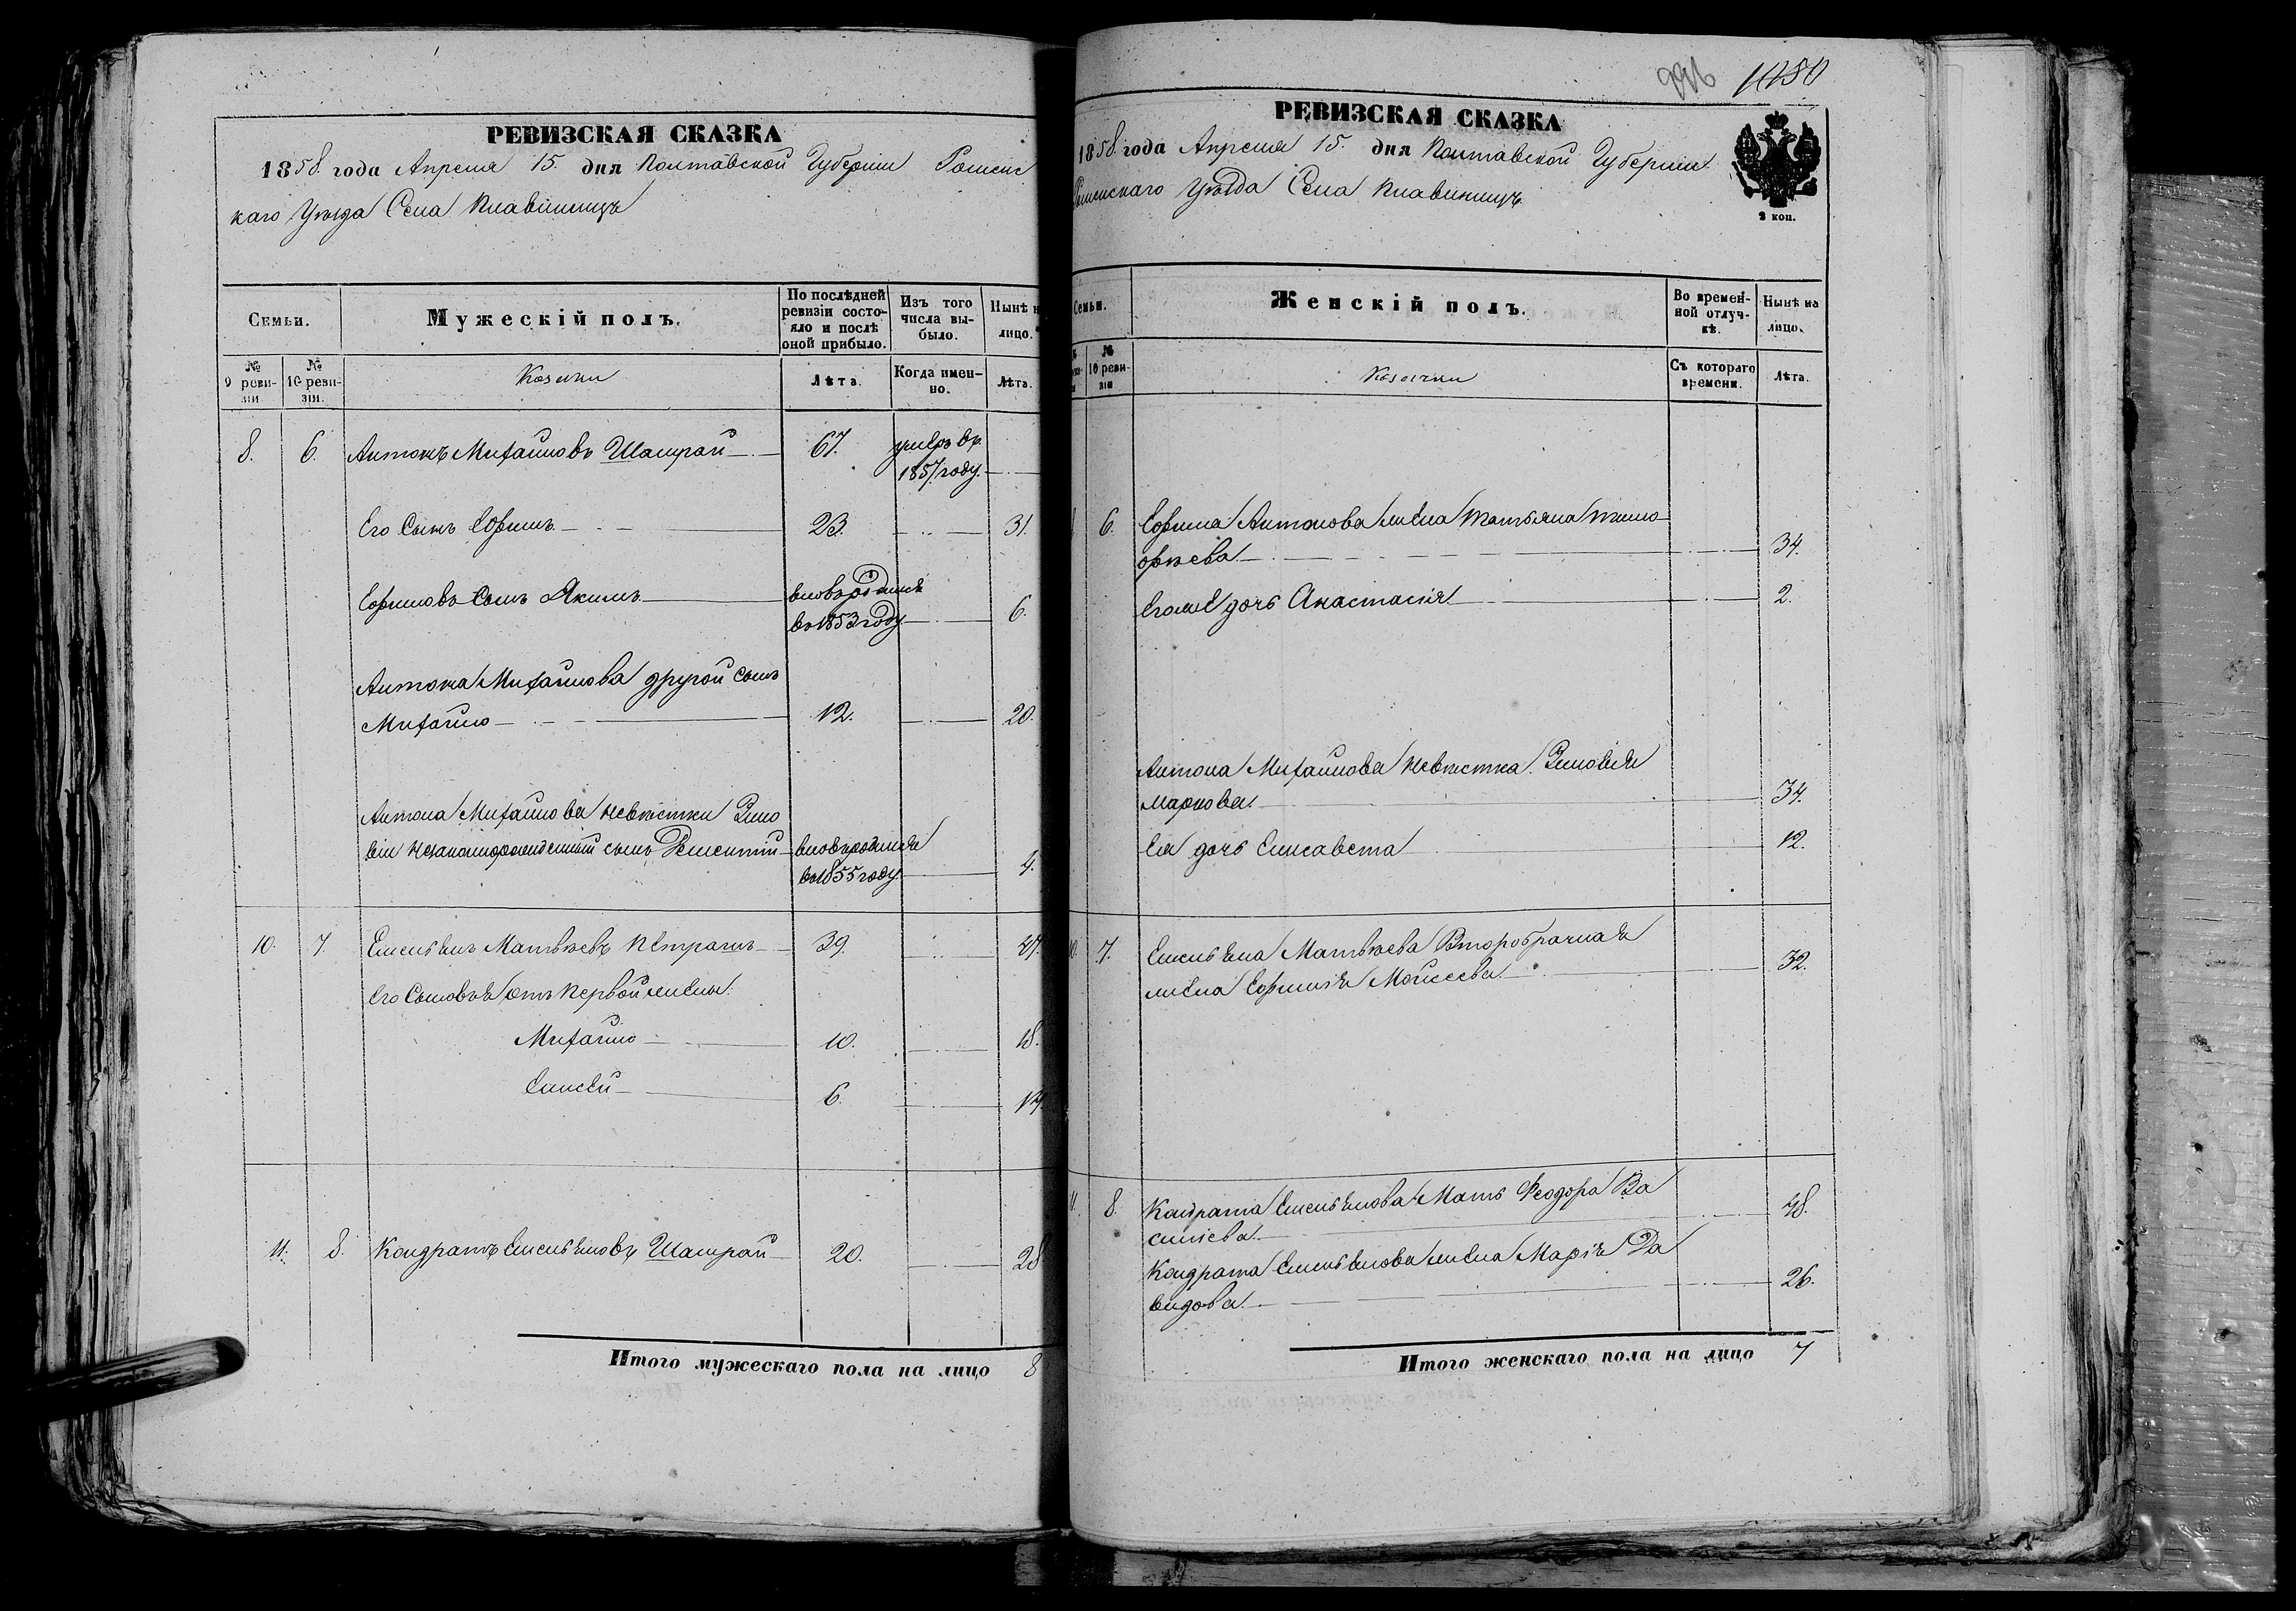 РЕВИЗСКАЯ СКАЗКА
1858. года Апреля 15. дня Полтавской Губерніи Роменс
каго Уѣзда Села Плавинищъ
Семьи.
Мужескій полъ.
По послѣдней ревизіи состо-
яло и послѣ
оной прибыло.
Изъ того
числа вы-
было.
Нынѣ н
лицо.
№
9 реви-
зіи.
№
10 реви-
зіи.
Козаки
Лѣта.
Когда имен-
но.
Лѣта.
8. 6. Антонъ Михайловъ Шамрай 67. умеръ въ
1857 году.
Его Сынъ Ефимъ 23. 31.
Ефимовъ Сынъ Якимъ вновърожденъ
въ 1853 году 6.
Антона Михайлова другой сынъ
Михайло 12. 20.
Антона Михайлова невѣстки Зино
віи незаконорожденный сынъ Дементій вновърожденъ
въ 1855 году. 4.
10. 7. Емельянъ Матвѣевъ Петрашъ 39. 47.
Его Сыновья отъ первой жены:
Михайло 10. 18.
Елисей 6. 14.
11. 8. Кондратъ Емельяновъ Шамрай 20. 28
Итого мужескаго пола на лицо 8
996 1080
РЕВИЗСКАЯ СКАЗКА
1858. года Апреля 15. дня Полтавской Губерніи
Роменскаго Уѣзда Села Плавинищъ
2 коп.
Семьи.
Женскій полъ.
Во времен-
ной отлуч-
кѣ.
Нынѣ на
лицо.
№
10 реви-
зіи
Козачки
Съ котораго
времени.
Лѣта.
6. Ефима Антонова жена Татьяна Тимо
ѳѣева 34.
Егоже дочь Анастасія 2.
Антона Михайлова невѣстка Зиновія
Маркова 34.
Ея дочь Елисавета 12.
10. 7. Емельяна Матвѣева Второбрачная
жена Ефимія Моисеева 32.
11. 8. Кондрата Емельянова Мать Ѳеодора Ва
силіева 48.
Кондрата Емельянова жена Марія Да
видова 26.
Итого женскаго пола на лицо 7